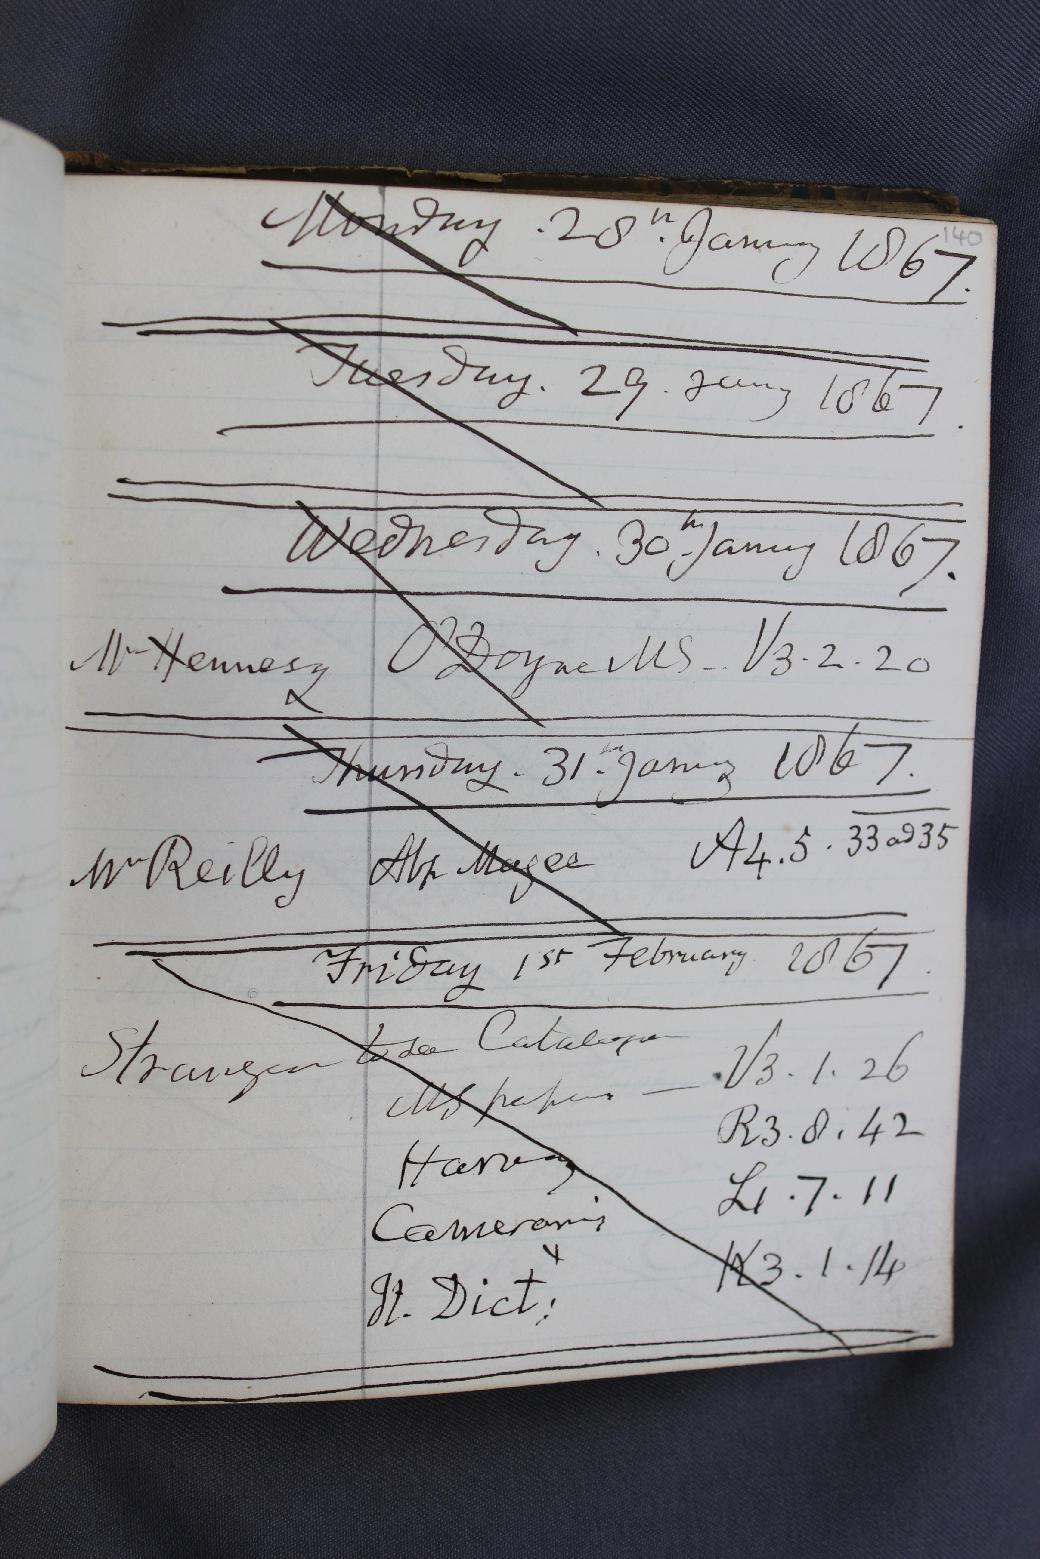 140
Monday. 28th. Janury 1867.
Tuesday. 29. Janry 1867.
Wednesday. 30th Janury 1867.
Mr Hennesy O'Doyne MS - V3.2.20
Thursday. 31th. Janury 1867.
Mr Reilly Abp Magee A4.5.33 ad 35
Friday 1st February 1867.
Stranger to see Catalogue
MS papers — V3.1.26
Harvey R3.8.42
Cameron's L1.7.11
It. Dict: K3.1.14